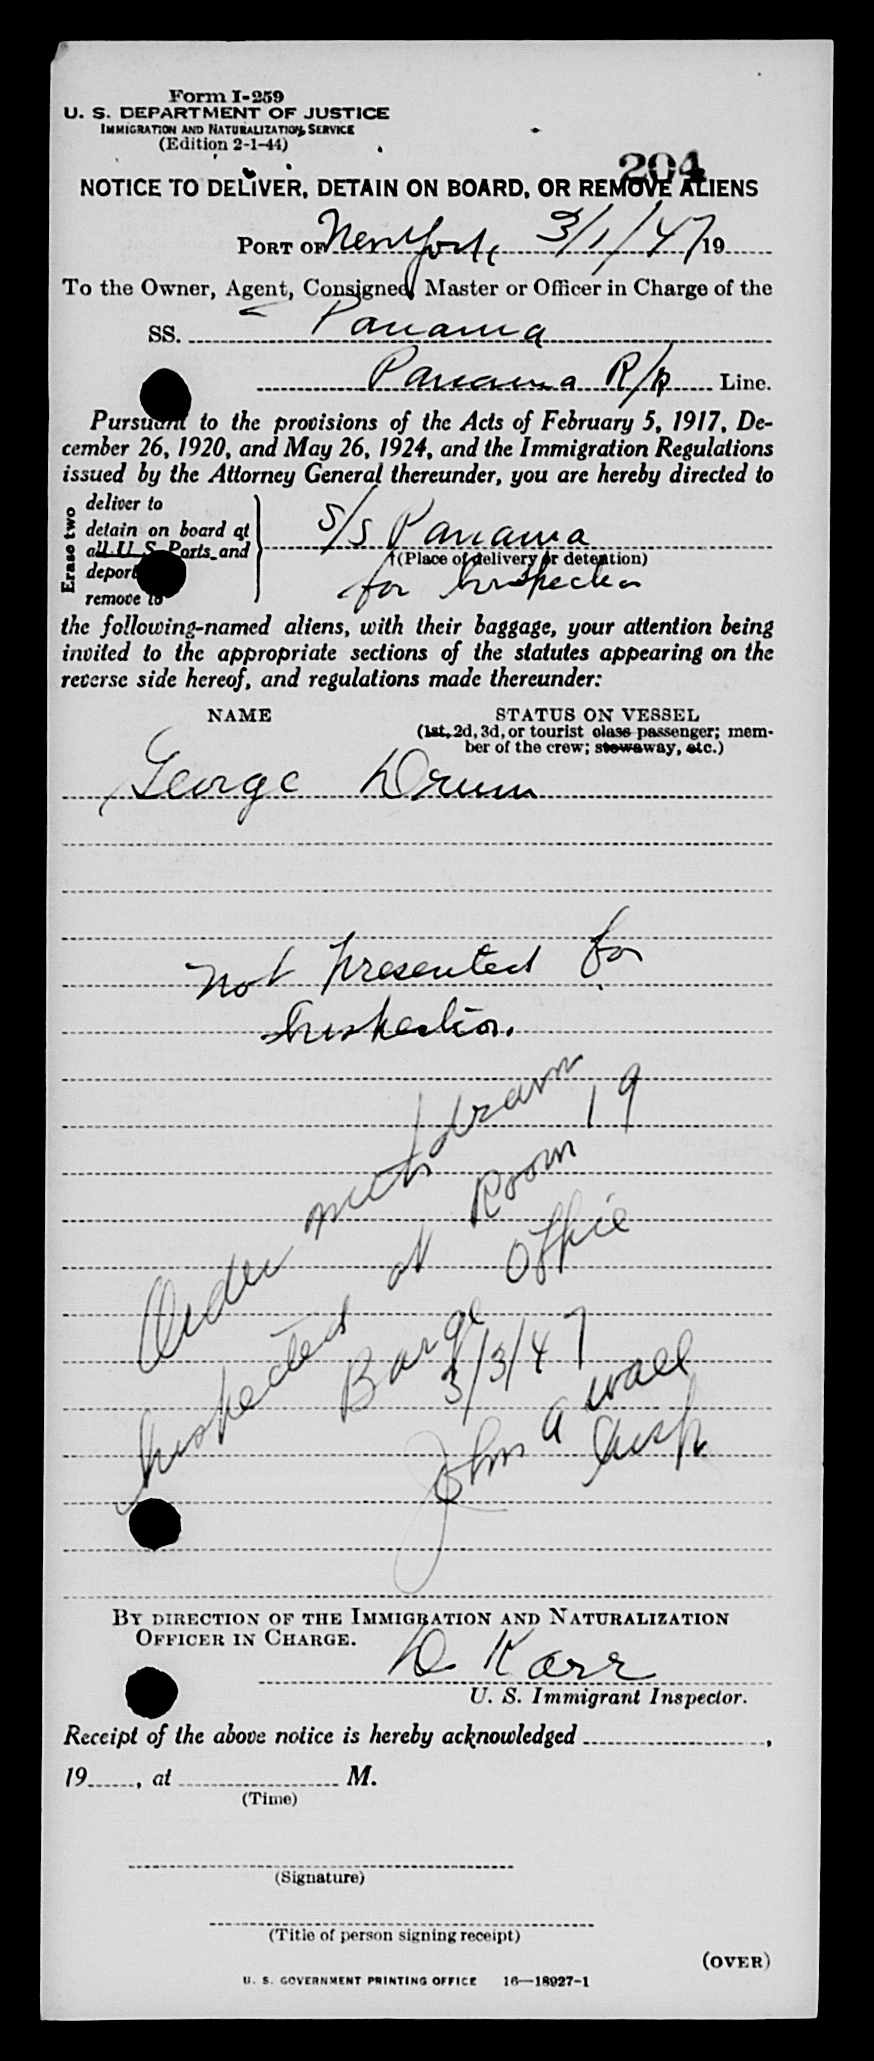 Form I-259
U. S. DEPARTMENT OF JUSTICE
IMMIGRATION AND NATURALIZATION SERVICE
(Edition 2-1-44)
204
NOTICE TO DELIVER, DETAIN ON BOARD, OR REMOVE ALIENS
PORT OF New York 3/1/47 19
To the Owner, Agent, Consignee, Master or Officer in Charge of the
SS. Panama
Panama R/R Line.
Pursuant to the provisions of the Acts of February 5, 1917, De-
cember 26, 1920, and May 26, 1924, and the Immigration Regulations
issued by the Attorney General thereunder, you are hereby directed to
Erase two
deliver to
detain on board at
all U S Ports and
deport
remove to
S/S Panama
(Place of delivery or detention)
for Inspection
the following-named aliens, with their baggage, your attention being
invited to the appropriate sections of the statutes appearing on the
reverse side hereof, and regulations made thereunder:
NAME
STATUS ON VESSEL
(1st, 2d, 3d, or tourist class passenger; mem-
ber of the crew; stowaway, etc.)
George Drum
not presented for
Inspection.
Order withdrawn
Inspected at Room 19
Barge Office
3/3/47
John A Wall
Insp
BY DIRECTION OF THE IMMIGRATION AND NATURALIZATION
OFFICER IN CHARGE.
D. Karr
U. S. Immigrant Inspector.
Receipt of the above notice is hereby acknowledged ,
19 , at M.
(Time)
(Signature)
(Title of person signing receipt)
(OVER)
U. S. GOVERNMENT PRINTING OFFICE 16—18927-1